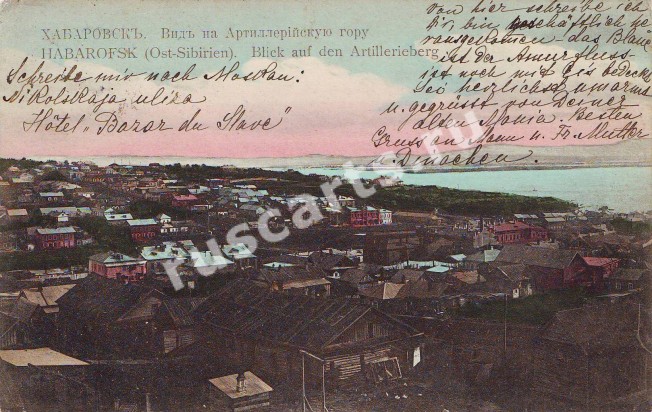 ХАБАРОВСКЪ. Видъ на Артиллерійскую гору
HABAROFSK (Ost-Sibirien). Blick auf den Artillerieberg
Schreibe mir nach Moskau:
Nikolskaja uliza
Hôtel „Bazar du Slave"
von hier schreibe ich
Dir, bin geschäftlich
das Blaue
ist der Amurfluss
ist noch mit Eis bedeckt
Sei herzlichst umarmt
u. gegrüsst von Deiner
alten Mania. Besten
Gruss an Mann u. Fr. Mutter
u. Dinachen.
ruscarts.ru